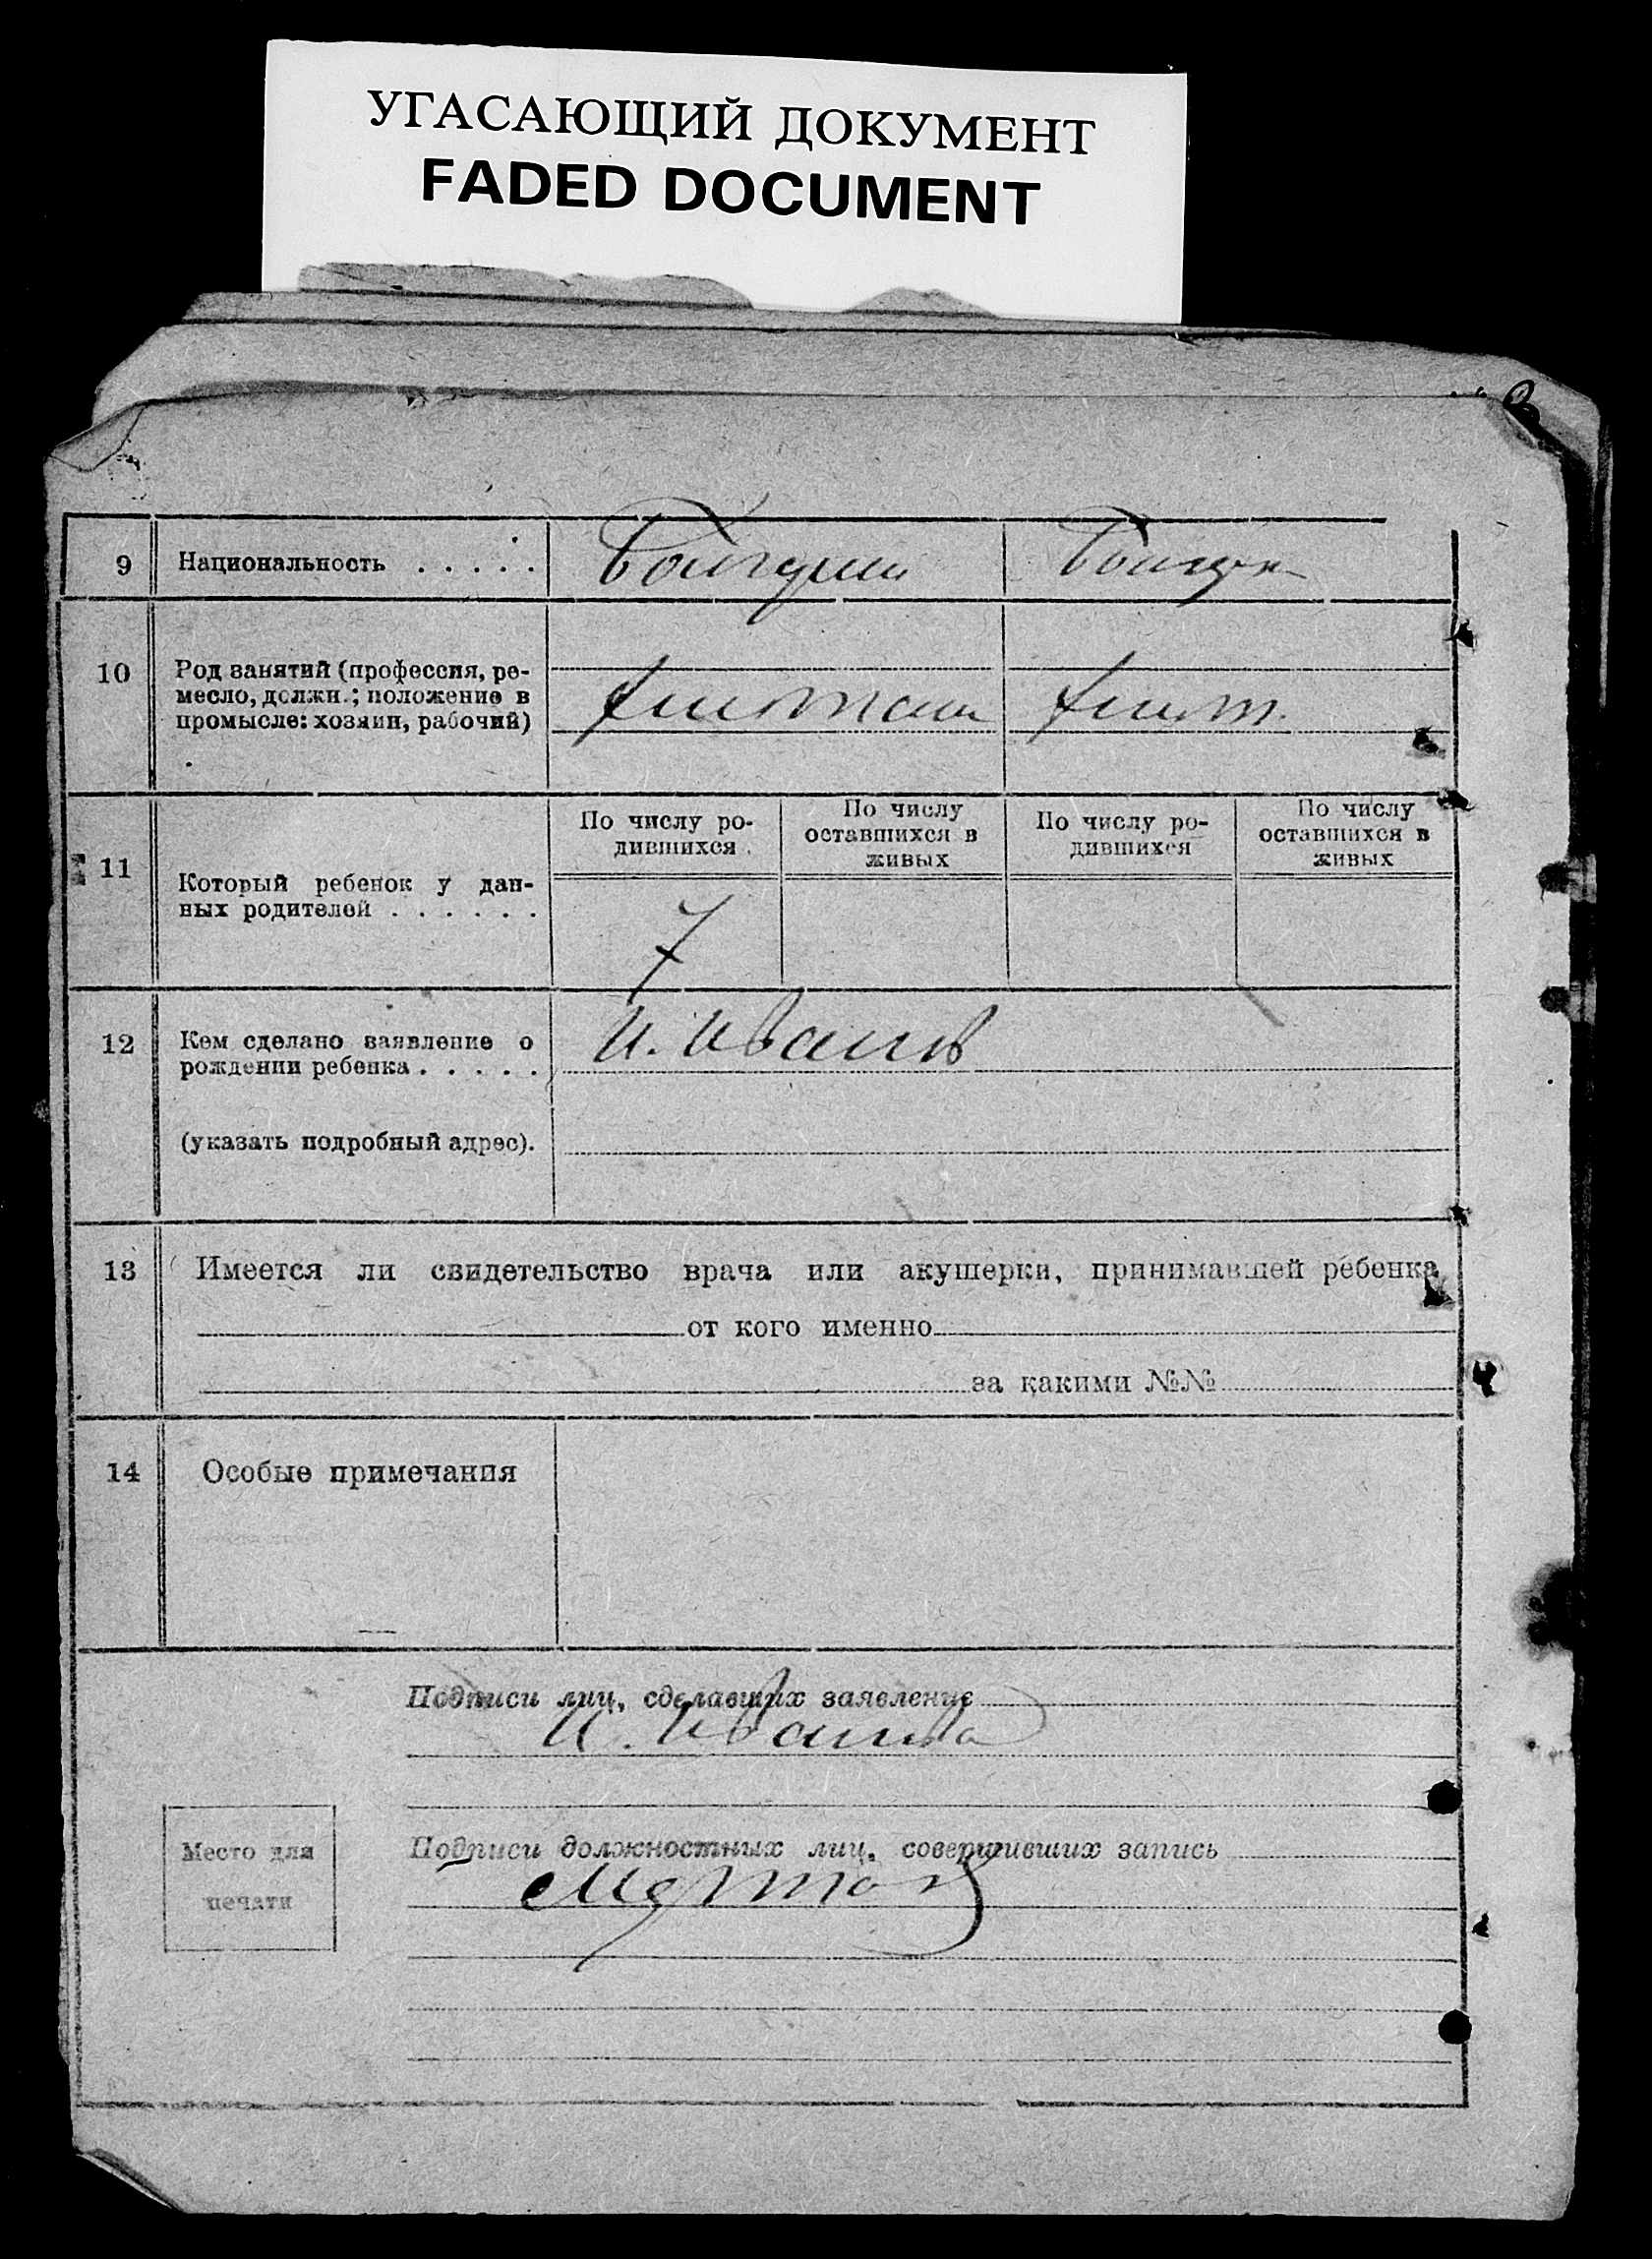 УГАСАЮЩИЙ ДОКУМЕНТ
FADED DOCUMENT
9 Национальность . . . . .
10 Род занятий (профессия, ре-
месло, должн.; положение в
промысле: хозяин, рабочий)
11 Который ребенок у дан-
ных родителей . . . . . .
По числу ро-
дившихся
По числу
оставшихся в
живых
По числу ро-
дившихся
По числу
оставшихся в
живых
7
12 Кем сделано заявление о
рождении ребенка . . . . .
И. Иванов
(указать подробный адрес).
13 Имеется ли свидетельство врача или акушерки, принимавшей ребенка
от кого именно
за какими №№
14 Особые примечания
Подписи лиц, сделавших заявление
И. Иванова
Место для
печати
Подписи должностных лиц, совершивших запись